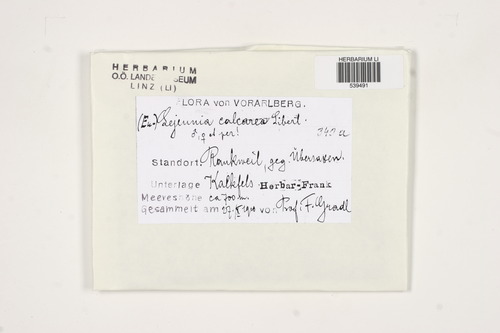 HERBARIUM
O.Ö. LANDESMUSEUM
LINZ (LI)
HERBARIUM LI
539491
FLORA von VORARLBERG.
(Eu-)Lejeunia calcarea Libert.
♂, ♀ et per!
343a
Standort: Rankweil, geg. Übersaxen.
Unterlage Kalkfels Herbar-Frank
Meereshöhe ca 700 m.
Gesammelt am von Prof. F. Gradl